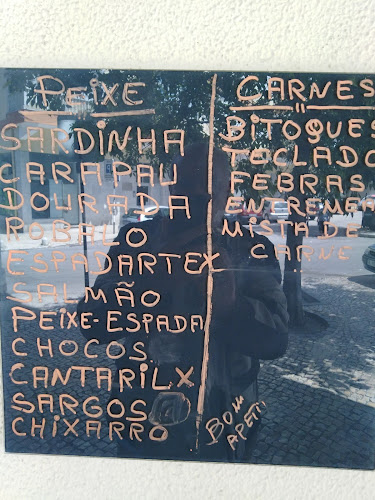 PEIXE
SARDINHA
CARAPAU
DOURADA
ROBALO
ESPADARTE X
SALMÃO
PEIXE-ESPADA
CHOCOS
CANTARIL X
SARGOS
CHIXARRO
CARNES
BITOQUES
TECLADO
FEBRAS
ENTREME
MISTA DE
CARNE
BOM
APETI